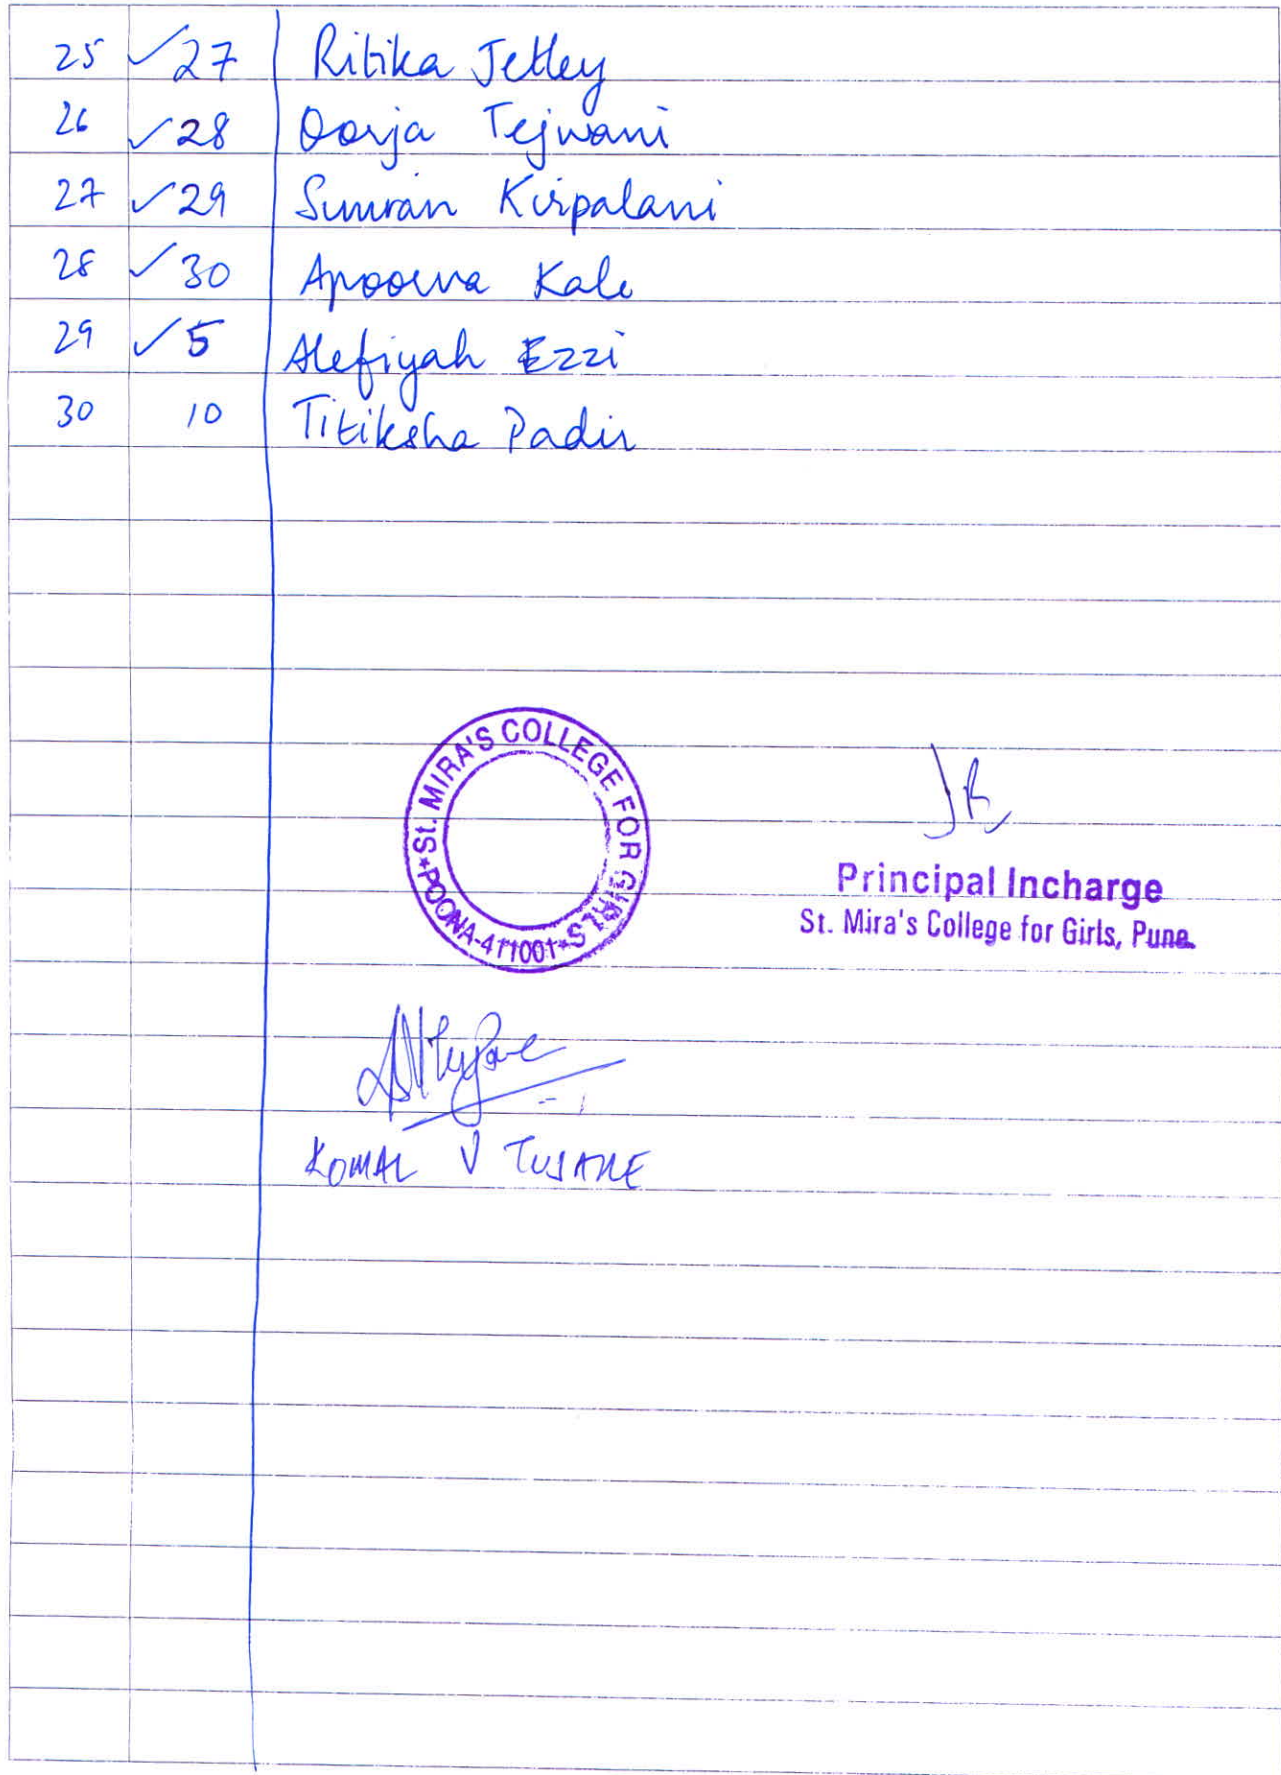 25 ✓27 Ritika Jetley
26 ✓28 Oorja Tejwani
27 ✓29 Simran Kirpalani
28 ✓30 Apoorva Kale
29 ✓5 Alefiyah Ezzi
30 10 Titiksha Padir
St. MIRA'S COLLEGE FOR GIRLS
*POONA-411001*
JR
Principal Incharge
St. Mira's College for Girls, Pune.
KOMAL V TUJARE